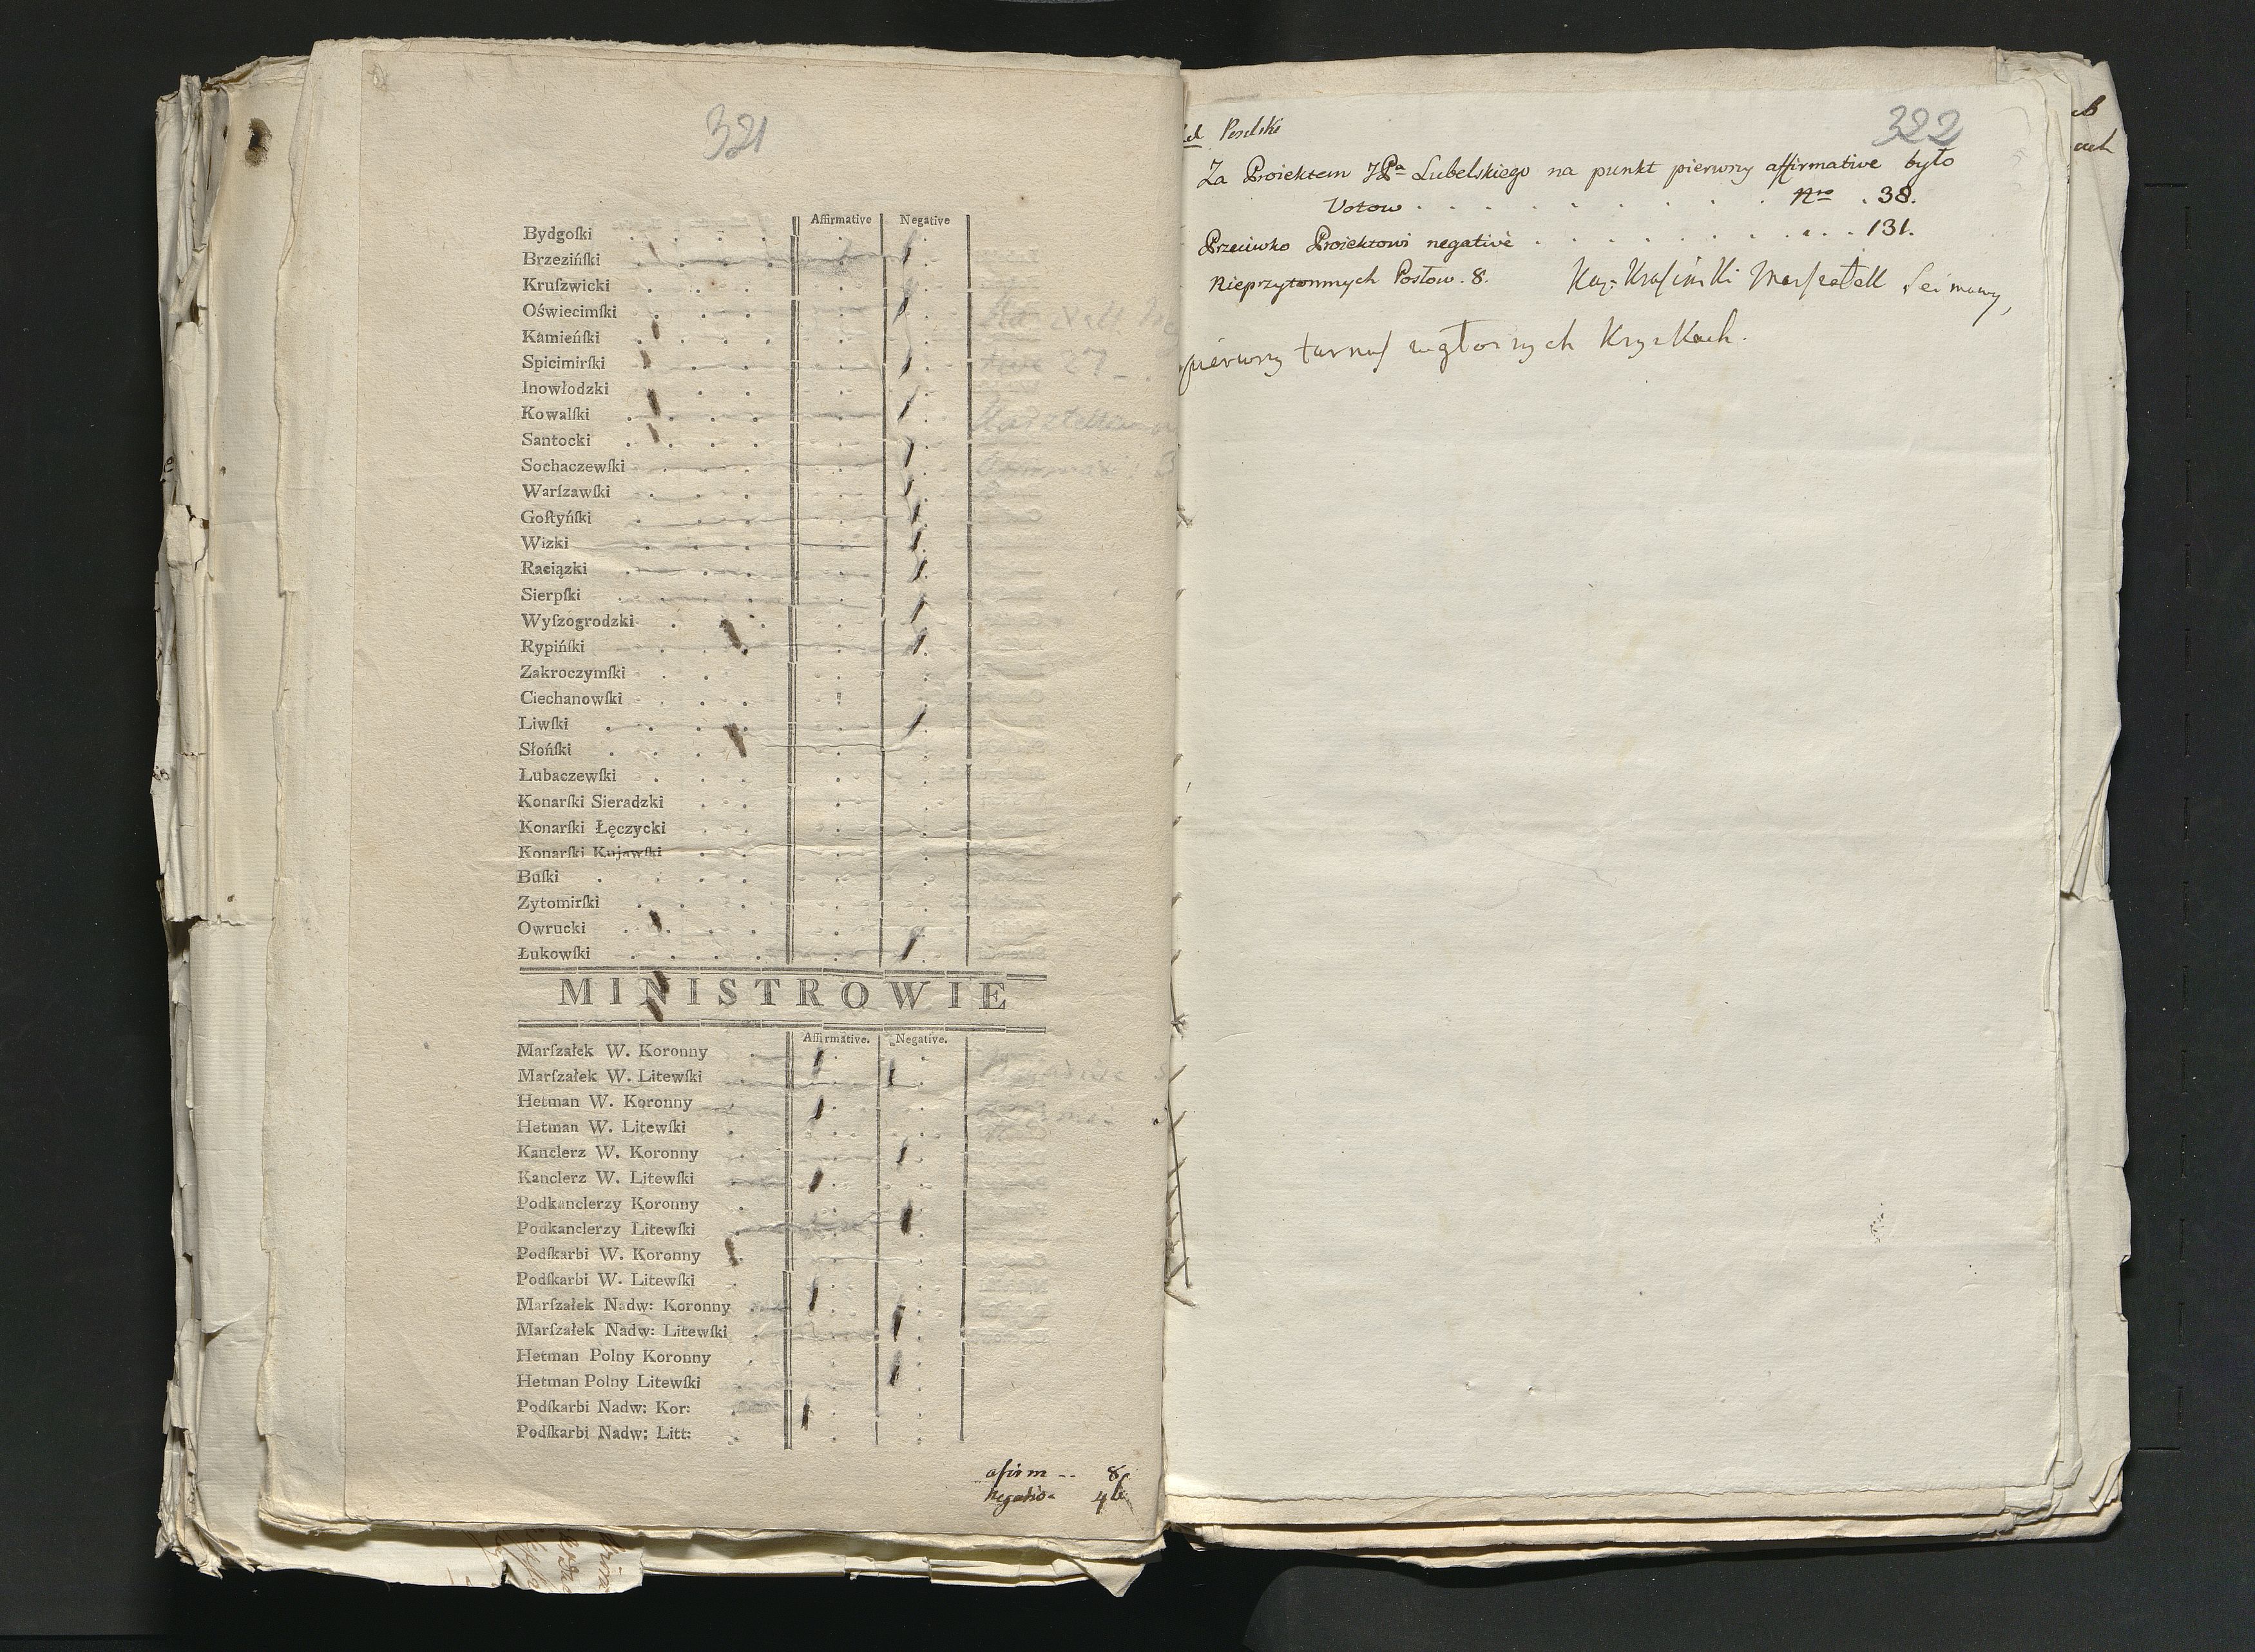 321
Affirmative Negative
Bydgoſki
Brzezińſki
Kruſzwicki
Oświecimſki
Kamieńſki
Spicimirſki
Inowłodzki
Kowalſki
Santocki
Sochaczewſki
Warſzawſki
Goſtyńſki
Wizki
Raciązki
Sierpſki
Wyſzogrodzki
Rypińſki
Zakroczymſki
Ciechanowſki
Liwſki
Słońſki
Lubaczewſki
Konarſki Sieradzki
Konarſki Łęczycki
Konarſki Kujawſki
Buſki
Zytomirſki
Owrucki
Łukowſki
MINISTROWIE
Affirmative. Negative.
Marſzałek W. Koronny
Marſzałek W. Litewſki
Hetman W. Koronny
Hetman W. Litewſki
Kanclerz W. Koronny
Kanclerz W. Litewſki
Podkanclerzy Koronny
Podkanclerzy Litewſki
Podſkarbi W. Koronny
Podſkarbi W. Litewſki
Marſzałek Nadw: Koronny
Marſzałek Nadw: Litewſki
Hetman Polny Koronny
Hetman Polny Litewſki
Podſkarbi Nadw: Kor:
Podſkarbi Nadw: Litt:
afirm -- 8
negativ-
322
Poselski
Za Proiektem JPa Lubelskiego na punkt pierwszy affirmative było
Votow . . . . . . . . . Nro . 38.
Przeciwko Proiektowi negativè . . . . . . . . . 131.
Nieprzytomnych Posłow. 8. Kaz: Kraſinſki Marſzałek Seimowy,
pierwszy turnuſ w głoſnych Kryſkach.